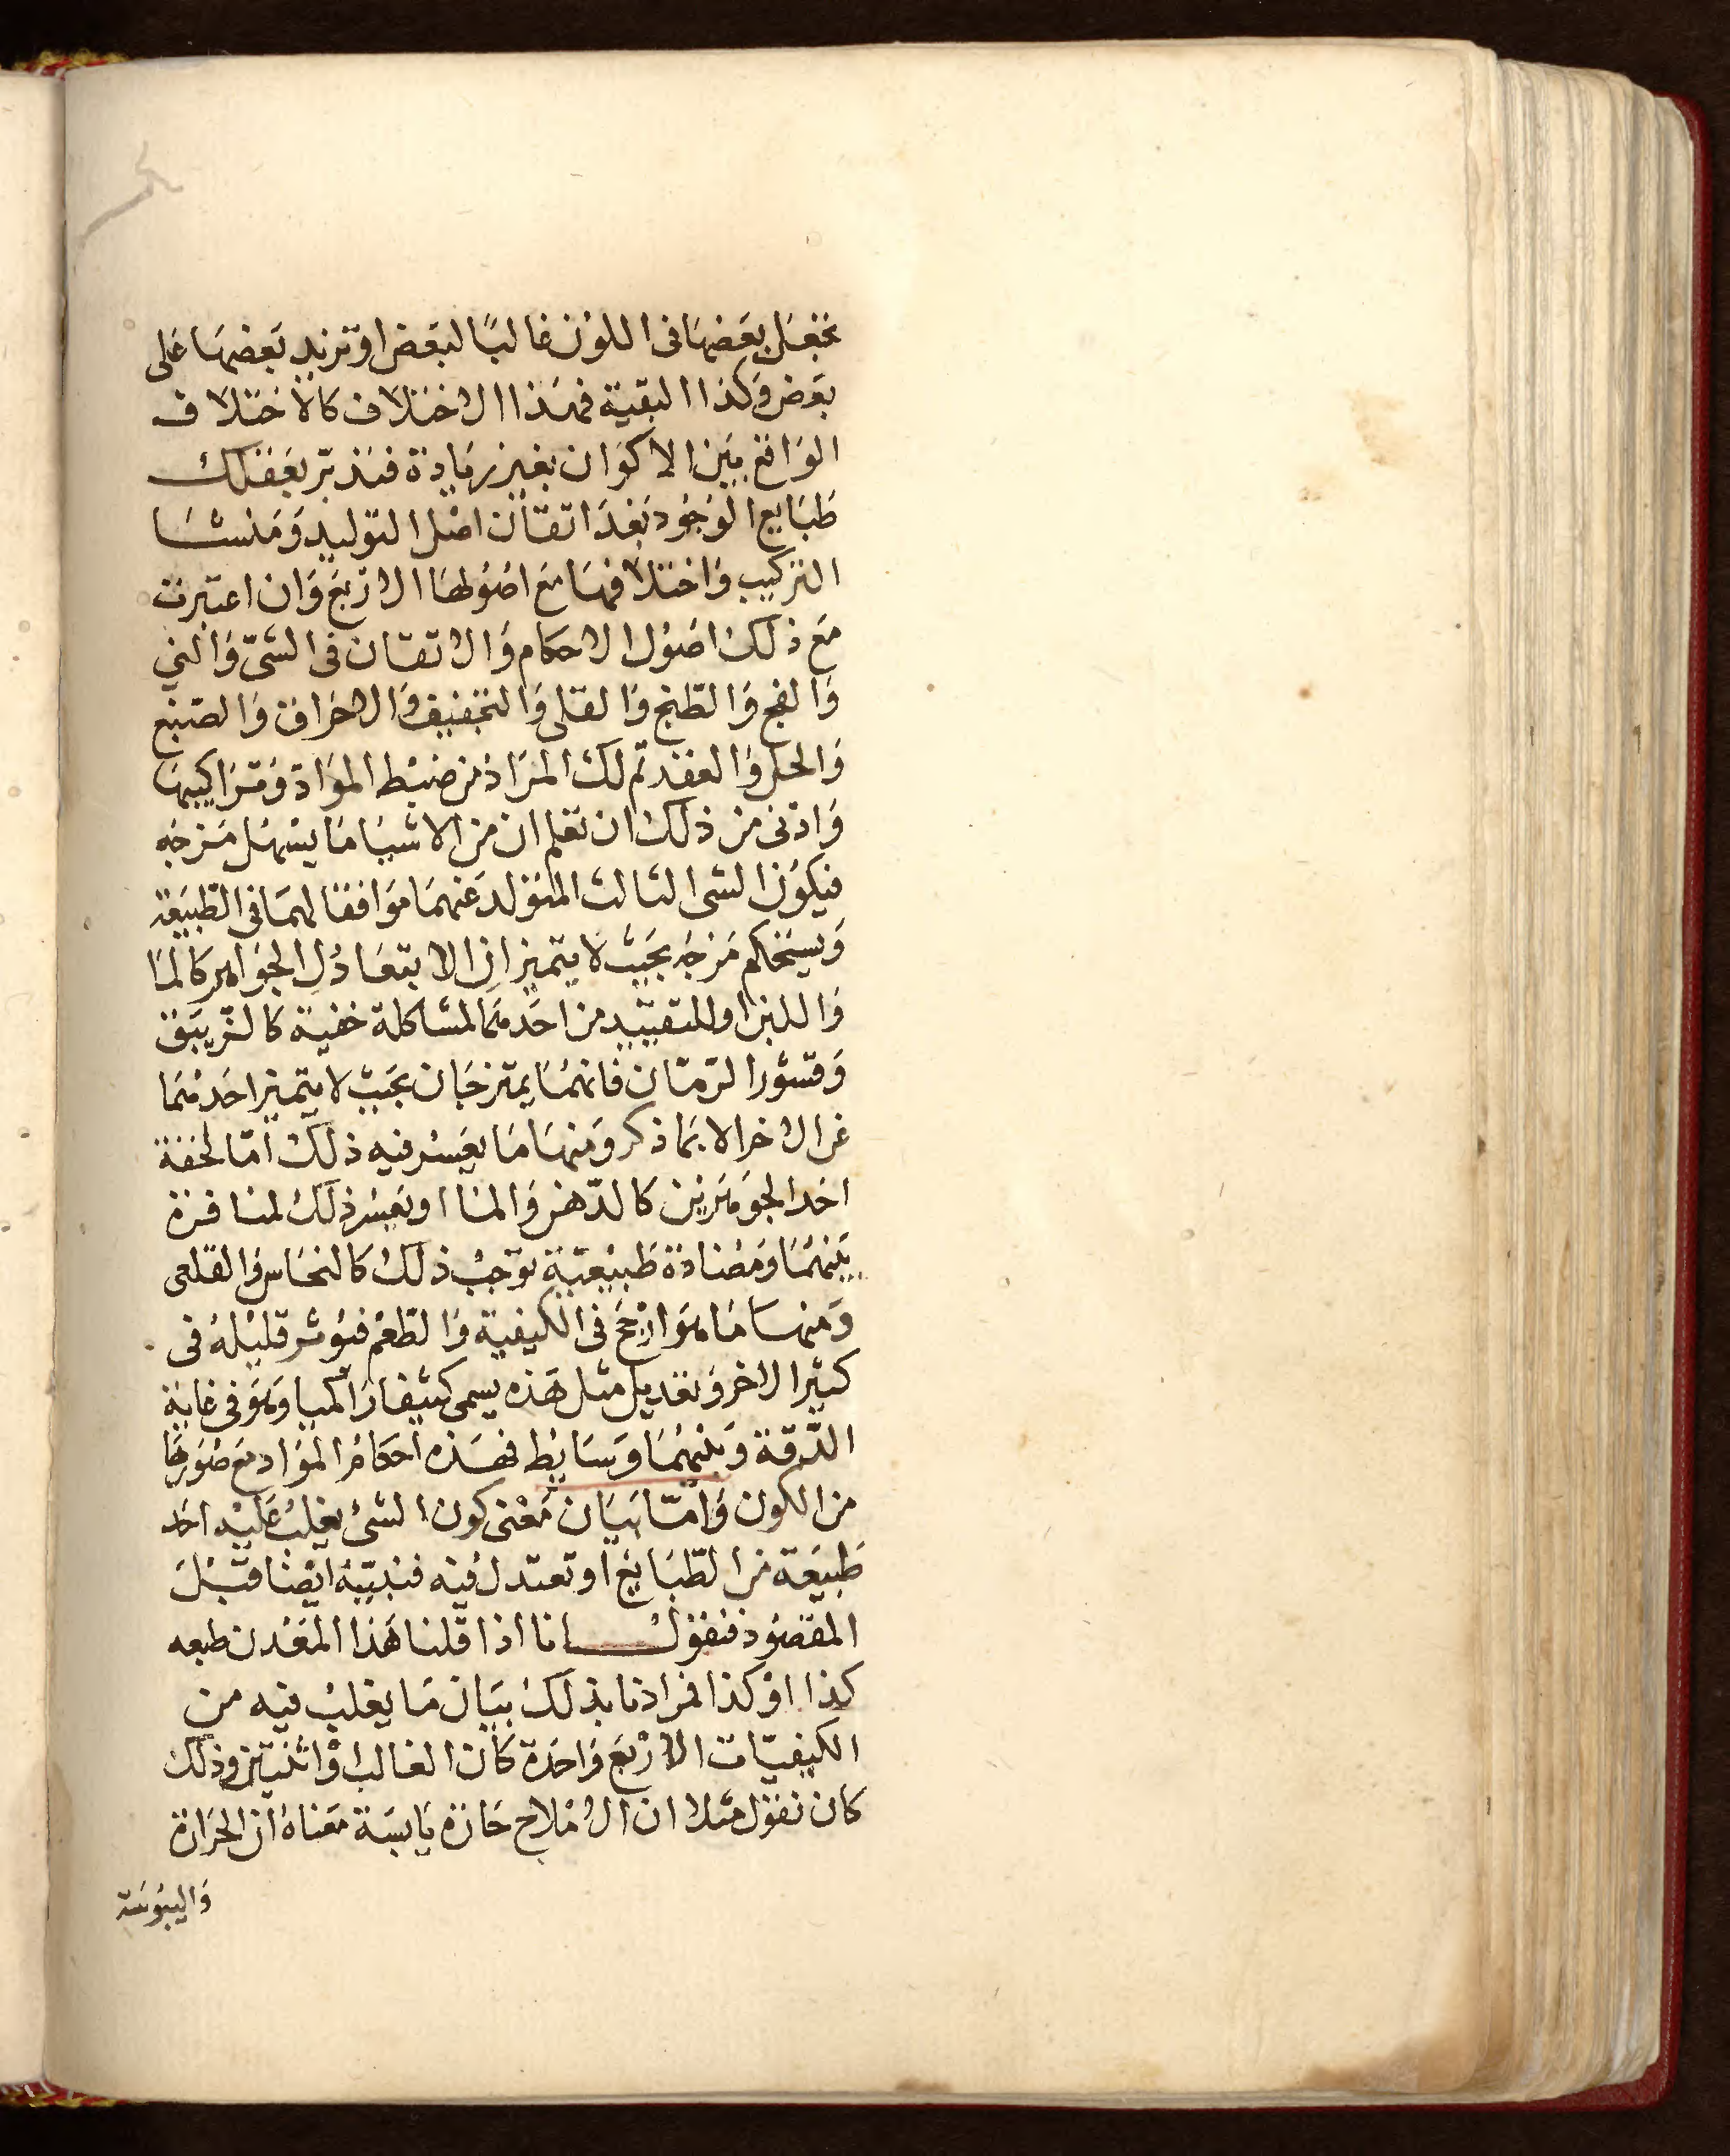 نجعل بعضها فى اللون غالبًا لبعض او تزيد بعضها على
بعض وكذا البقية فهذا الاختلاف كالاختلاف
الواقع بين الاكوان بغير زيادة فتدبر بعقلك
طبايع الوجود بعد اتقان اصل التوليد ومنشا
التركيب واختلافها مع اصولها الاربع وان اعتبرت
مع ذلك اصول الاحكام والاتقان فى الشىّ والنى
والفج والطبخ والقلى والتجفيف والاحراق والصبغ
والحل والعقد تم لك المراد من ضبط المواد وتراكيبها
وادنى من ذلك ان تعلم ان من الاشيا ما يسهل مزجه
فيكون الشى الثالث المتولد عنهما موافقا لهما فى الطبيعة
ويستحكم مزجه بحيث لا يتميز ان الا بتعادل الجواهر كالما
واللبن او للتقييد من احدهما لمشاكلة خفية كالزيبق
وقشور الرمّان فانهما يمتزجان بحيث لا يتميز احدهما
عن الاخر الا بما ذكر ومنها ما يعسر فيه ذلك امّا لخفة
احد الجوهرين كالدّهن والما او يعسر ذلك لمنافرة
بينهما ومضادة طبيعيّة توجب ذلك كالنحاس والقلعى
ومنها ما هو ارجح فى الكيفية والطعم فيوثر قليله فى
كثير الاخر وتعديل مثل هذه يسمى كشف اراكميا وهو فى غاية
الدّقة وبينهما وسايط فهذه احكام المواد مع صورها
من الكون وامّا بيان معنى كون الشى يغلب عليه احد
طبيعة من الطبايع او تعتدل فيه فنبيّنه ايضا قبل
المقصود فنقول انا اذا قلنا هذا المعدن طبعه
كذا او كذا فمرادنا بذلك بيان ما يغلب فيه من
الكيفيّات الاربع واحدة كان الغالب او اثنتين وذلك
كان نقول مثلا ان الاملاح حارة يابسة معناه ان الحرارة
واليبوسة